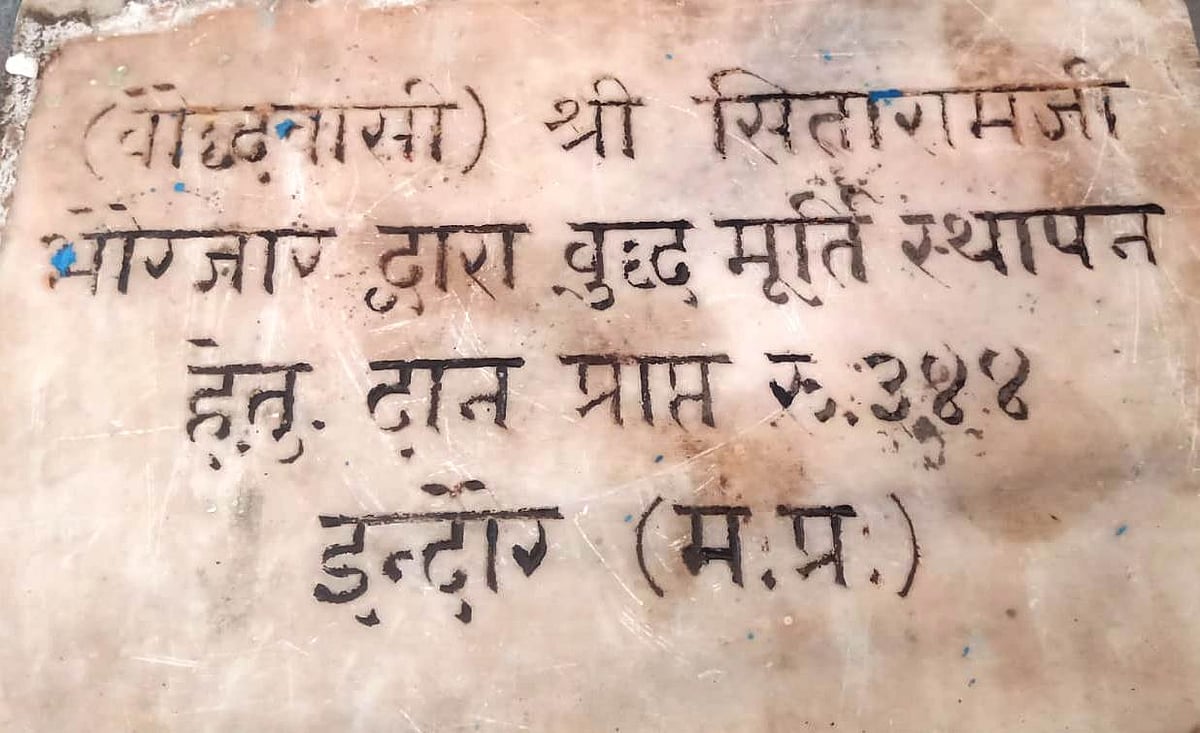 (बौद्धवासी) श्री सितारामजी
भौरजार द्वारा बुद्ध मूर्ति स्थापन
हेतु. दान प्राप्त रु.३४४
इन्दौर (म.प्र.)